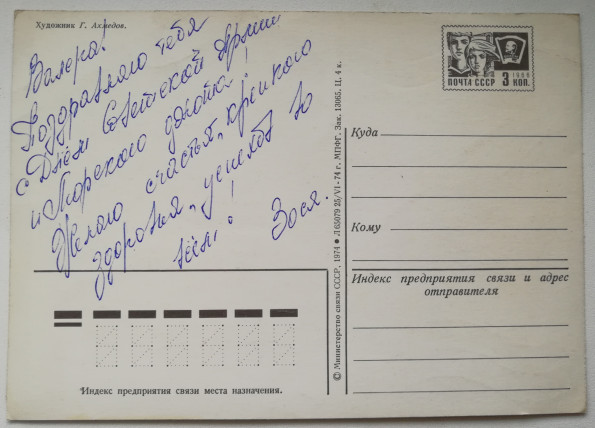 Художник Г. Ахмедов.
Валера!
Поздравляю тебя
с Днём Советской Армии
и Морского флота!
Желаю счастья, крепкого
здоровья, успехов во
всём! Зося.
ПОЧТА СССР 3 КОП.
1966
Куда
Кому
Индекс предприятия связи и адрес
отправителя
Индекс предприятия связи места назначения.
© Министерство связи СССР, 1974 ● Л 65079 25/VI-74 г. МПФГ. Зак. 13065. Ц. 4 к.